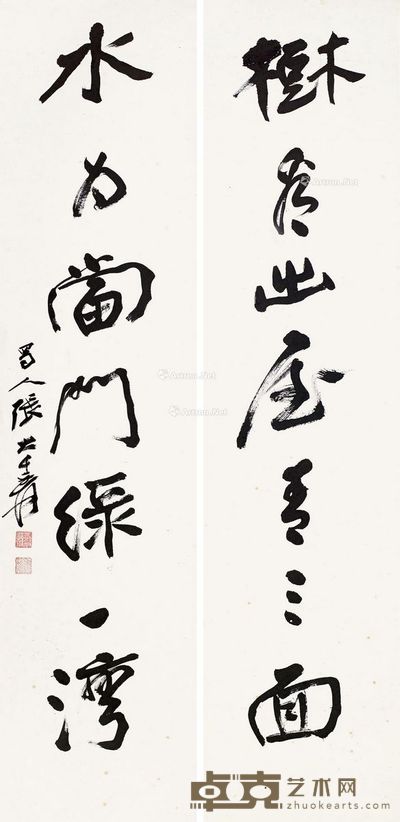 樹出屋青三面
水为當門綠一灣
蜀人張大千爰
Artron.Net
Artron.Net
Artron.Net
Artron.Net
卓克艺术网
zhuokearts.com